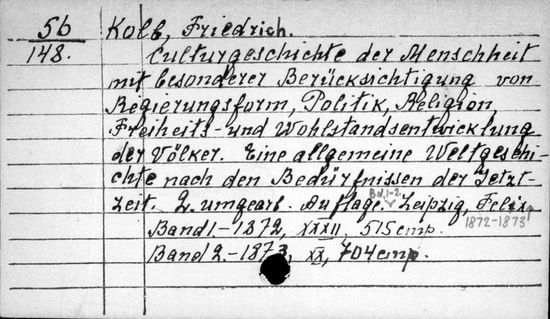 56 Kolb, Friedrich.
148. Culturgeschichte der Menschheit
mit besonderer Berücksichtigung von
Regierungsform, Politik, Religion,
Freiheits- und Wohlstandsentwicklung
der Völker. Eine allgemeine Weltgeschi-
chte nach den Bedürfnissen der Jetzt-
zeit. 2. umgearb. Auflage. Bd. 1-2. Leipzig, Felix,
1872-1873
Band 1.-1872, XXXII, 515 cmp.
Band 2.-1873, XX, 704 cmp.